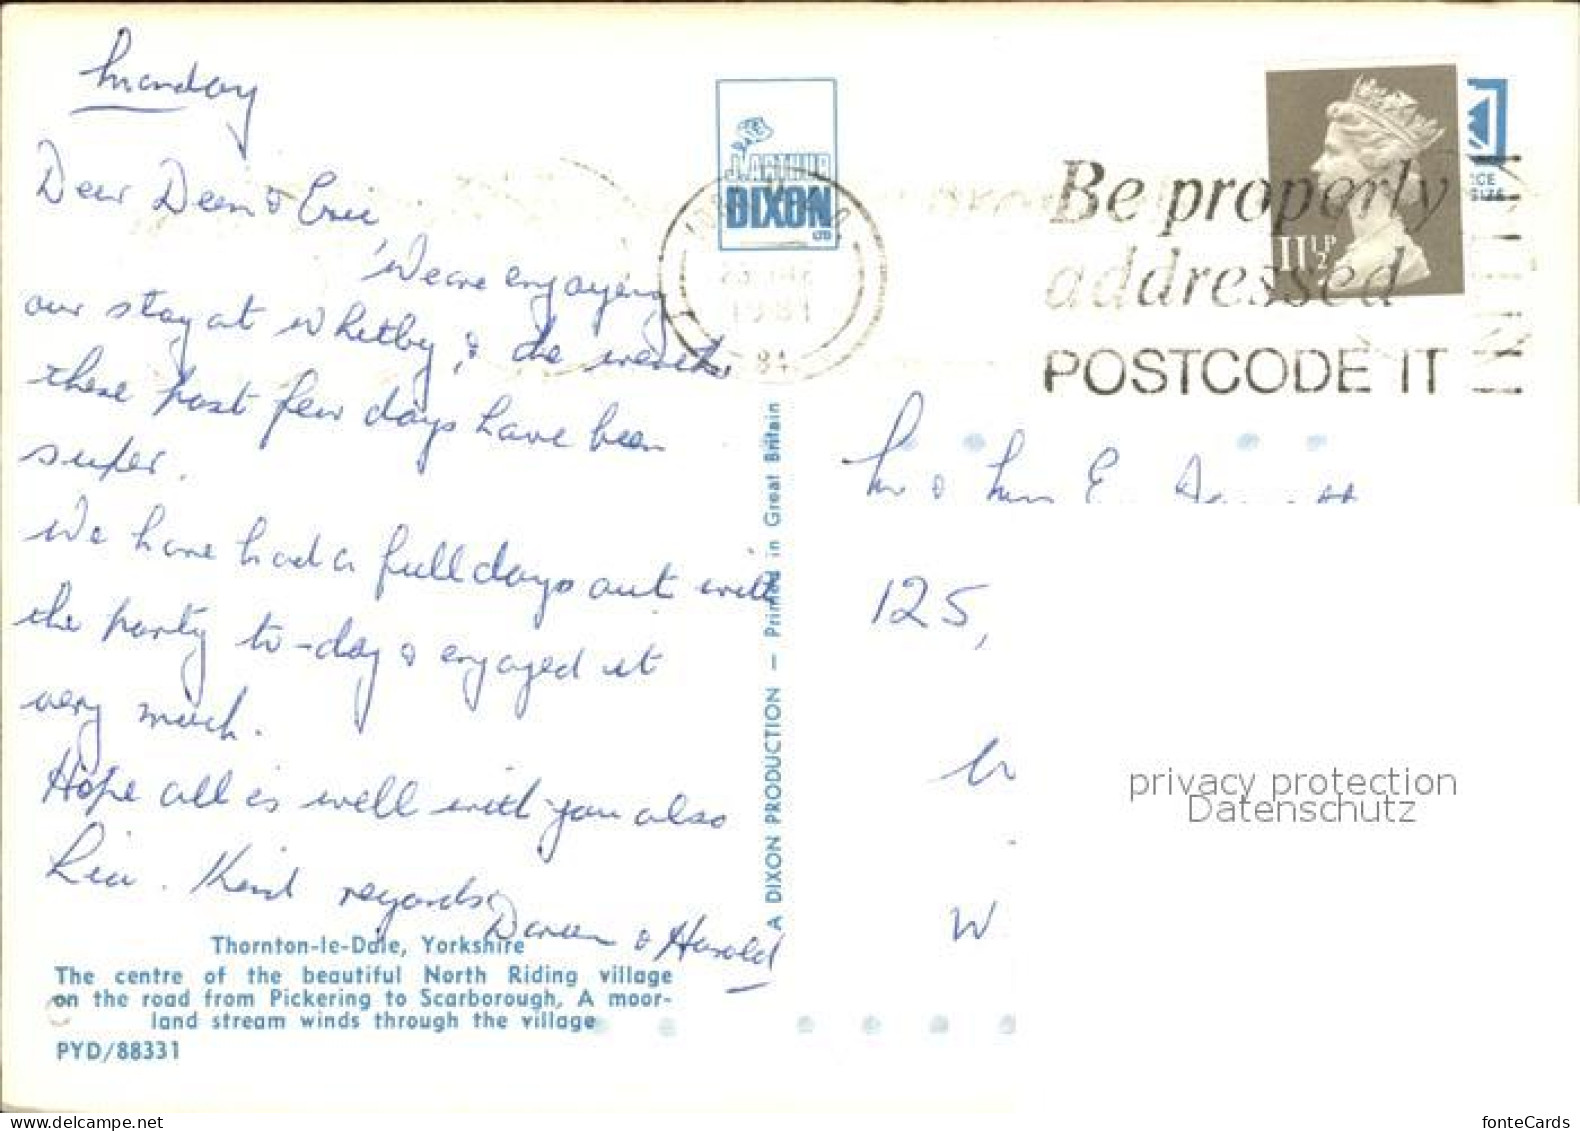 Monday
Dear Deen & Eric
We are enjoying
our stay at Whitby, & the weather
these past few days have been
super.
We have had a full days out with
the party to-day & enjoyed it
very much.
Hope all is well with you also
Kind regards
Doreen & Harold
Thornton-le-Dale, Yorkshire
The centre of the beautiful North Riding village
on the road from Pickering to Scarborough, A moor-
land stream winds through the village
PYD/88331
J. ARTHUR
DIXON
LTD
A DIXON PRODUCTION — Printed in Great Britain
1981
Be properly
addressed
POSTCODE IT
11½P
Mr & Mrs E.
125,
W
privacy protection
Datenschutz
fonteCards